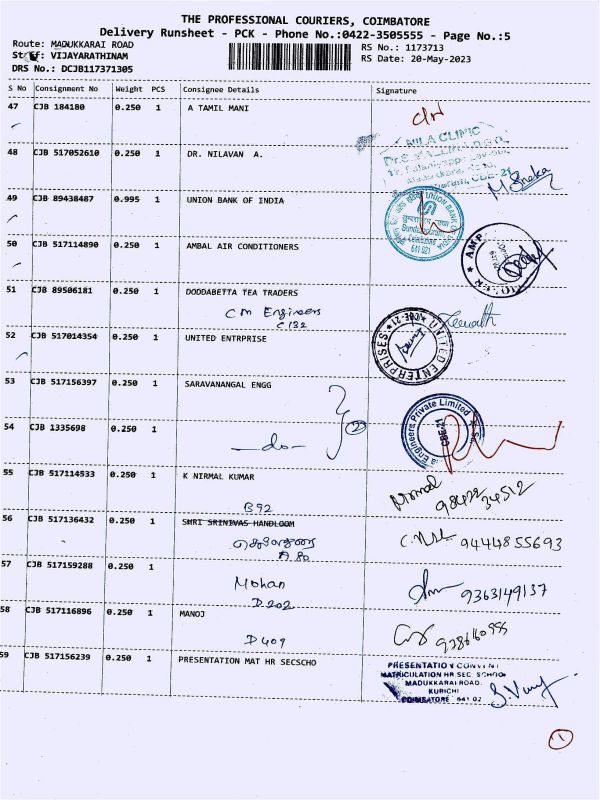 THE PROFESSIONAL COURIERS, COIMBATORE
Delivery Runsheet - PCK - Phone No.:0422-3505555 - Page No.:5
Route: MADUKKARAI ROAD
RS No.: 1173713
Staff: VIJAYARATHINAM
RS Date: 20-May-2023
DRS No.: DCJB117371305
S No Consignment No Weight PCS Consignee Details Signature
47 CJB 184180 0.250 1 A TAMIL MANI
48 CJB 517052610 0.250 1 DR. NILAVAN A.
NILA CLINIC
49 CJB 89438487 0.995 1 UNION BANK OF INDIA
UNION BANK OF INDIA
641 021
50 CJB 517114890 0.250 1 AMBAL AIR CONDITIONERS
51 CJB 89506181 0.250 1 DODDABETTA TEA TRADERS
CM Engineers
C 132
52 CJB 517014354 0.250 1 UNITED ENTRPRISE
UNITED ENTERPRISES
CBE-21
53 CJB 517156397 0.250 1 SARAVANANGAL ENGG
2
Engineers Private Limited
CBE-21
54 CJB 1335698 0.250 1
-do-
55 CJB 517114533 0.250 1 K NIRMAL KUMAR
Nirmal
98422 34512
B92
56 CJB 517136432 0.250 1 SHRI SRINIVAS HANDLOOM
A 80
9444855693
57 CJB 517159288 0.250 1
Mohan
D.202
9363149137
58 CJB 517116896 0.250 1 MANOJ
D409
59 CJB 517156239 0.250 1 PRESENTATION MAT HR SECSCHO
PRESENTATION CONVENT
MATRICULATION HR SEC. SCHOOL
MADUKKARAI ROAD.
KURICHI
COIMBATORE 641 02
1